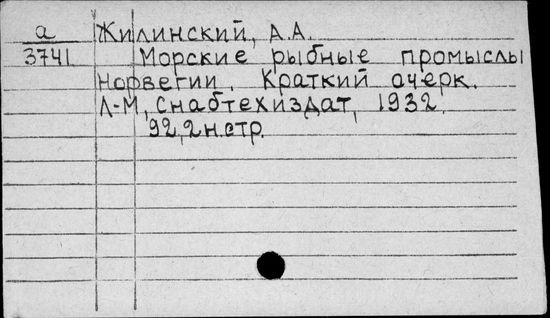 а Жилинский, А.А.
3741 Морские рыбные промыслы
Норвегии. Краткий очерк.
Л-М, Снабтехиздат, 1932.
92,2н.стр.